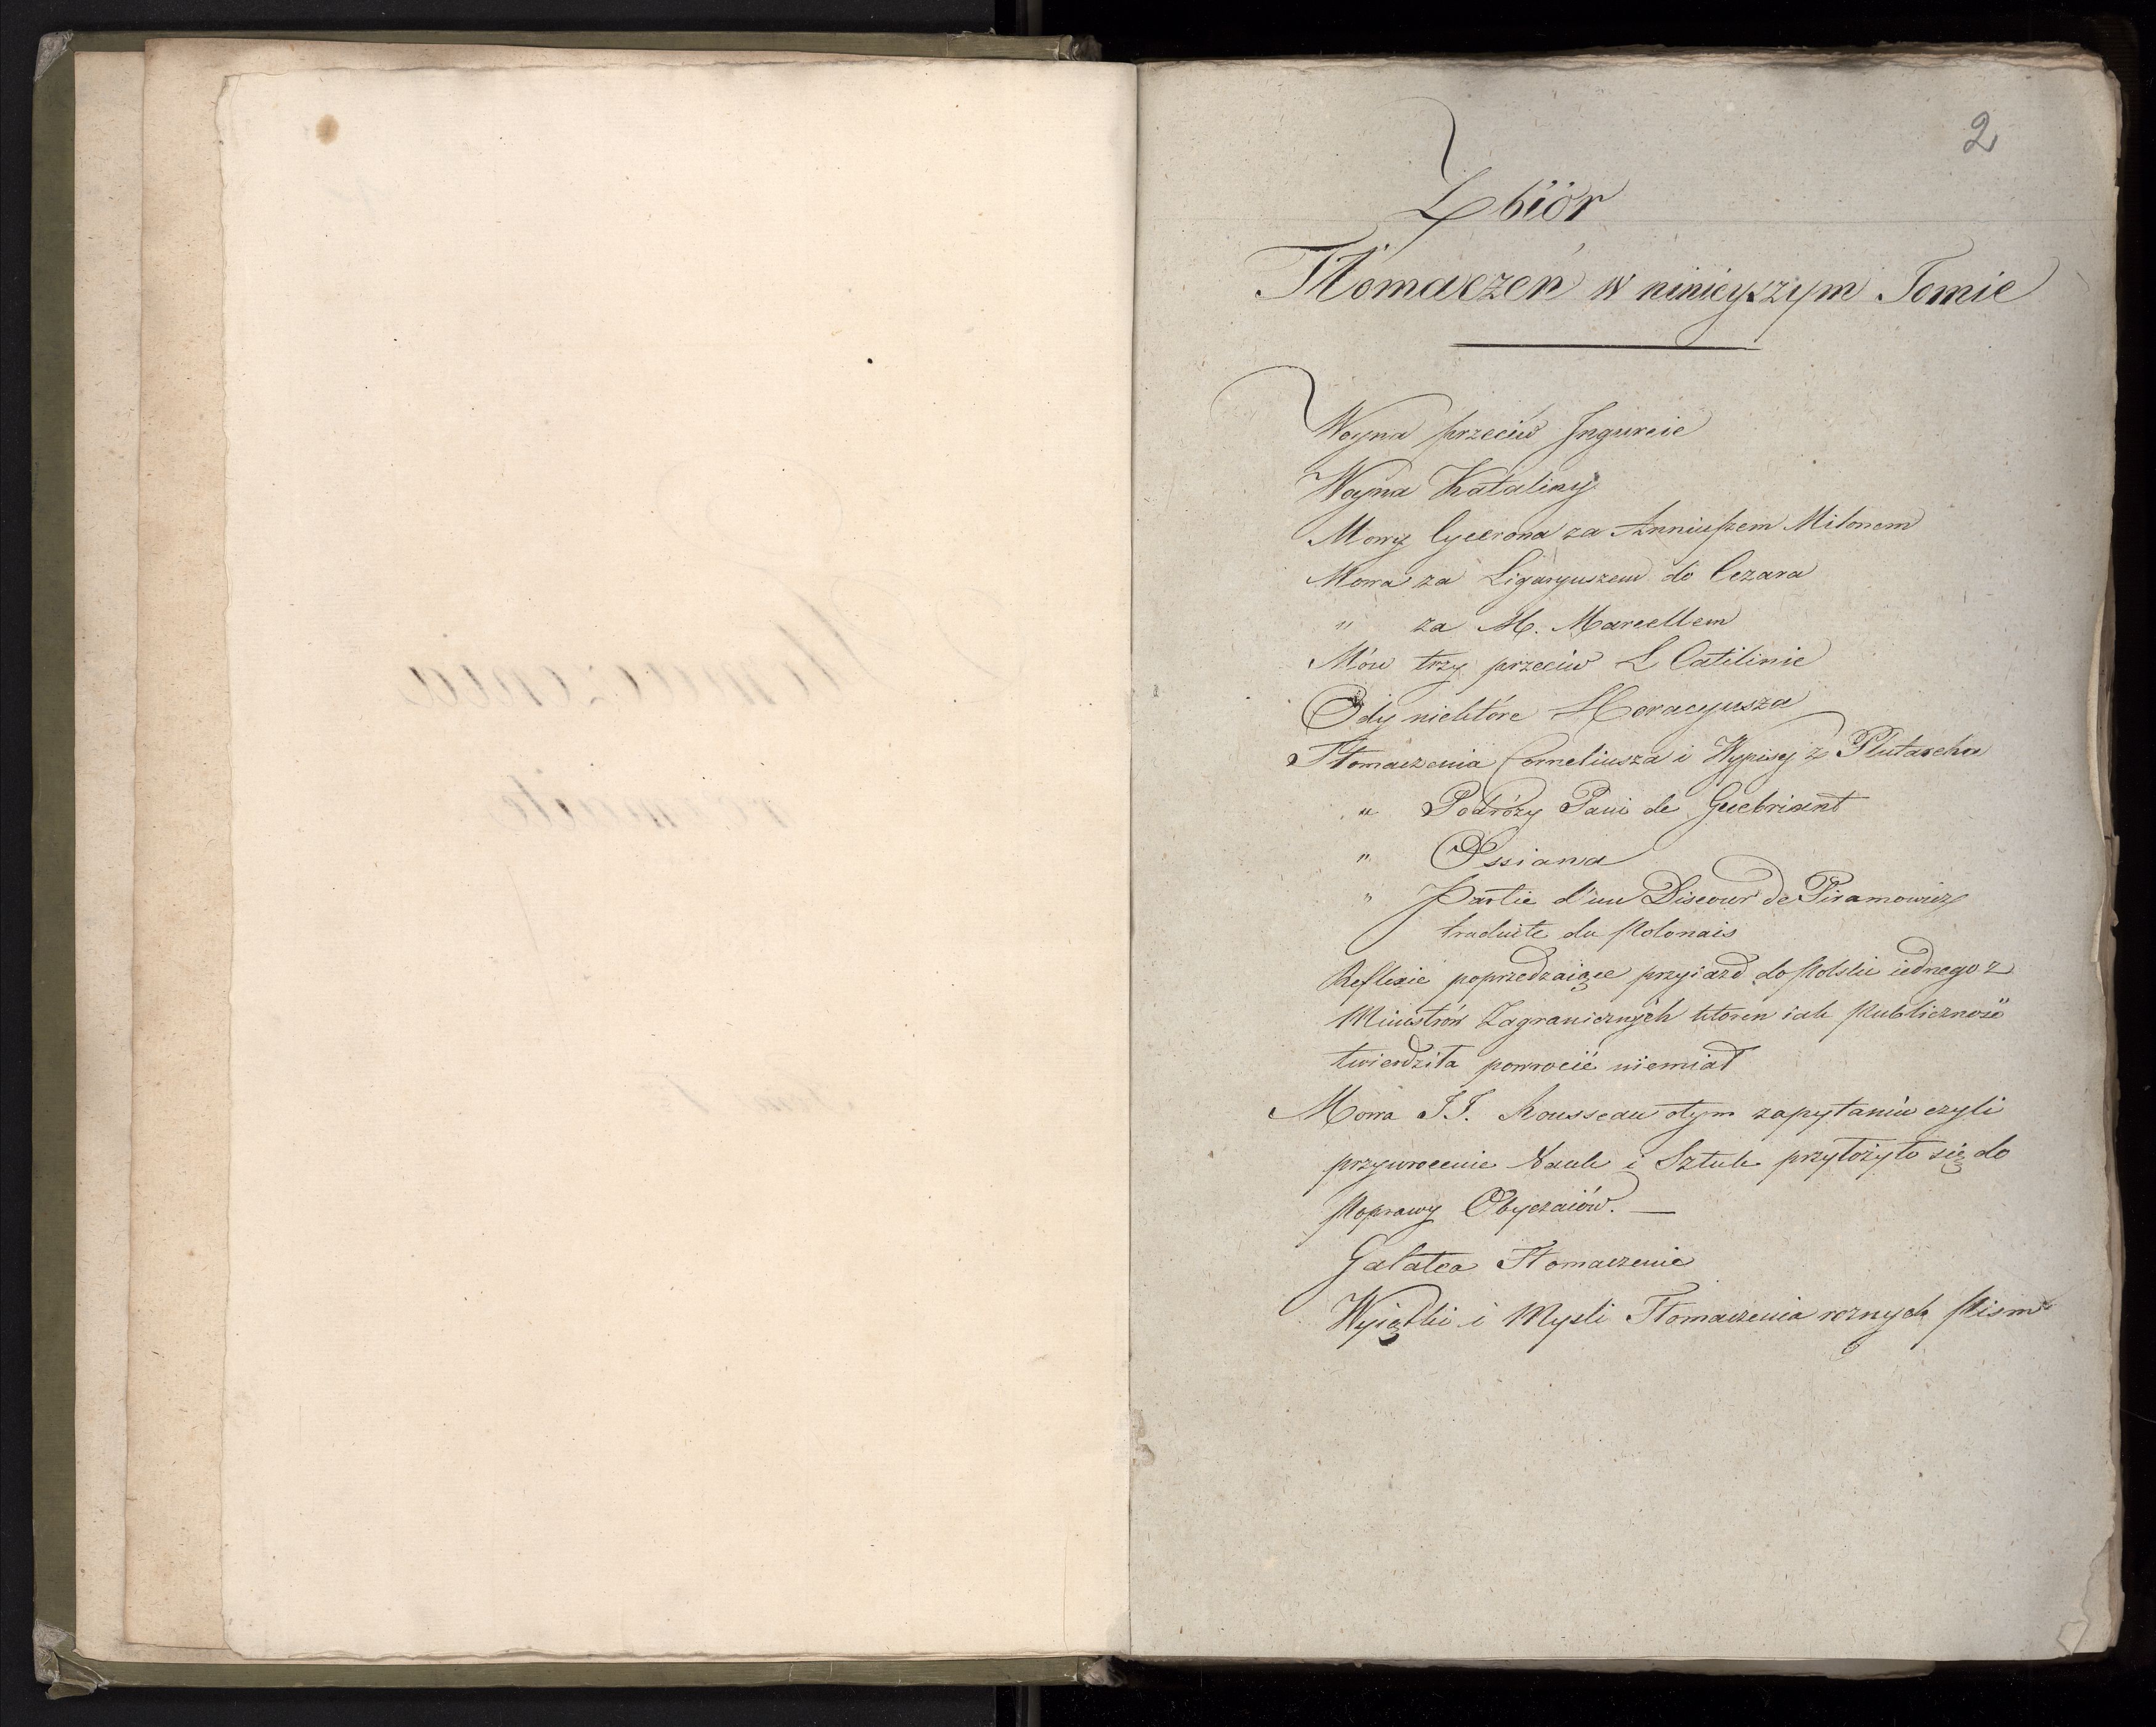 2
Zbiór
Tłomaczeń w ninieyszym Tomie
Woyna przeciw Jugurcie
Woyna Kataliny
Mowy Cycerona za Anniuszem Milonem
Mowa za Ligaryuszem do Cezara
" za M. Marcellem
Mów trzy przeciw L Catilinie
Ody niektóre Horacyusza
Tłomaczenia Corneliusza i Wypisy z Plutarcha
" Podróży Pani de Guebriant
" Ossiana
" Partie d'un Discour de Piramowicz
traduite du Polonais
Reflexie poprzedzaiące przyiazd do Polski iednego z
Ministrów Zagranicznych ktoren iak Publiczność
twierdziła powrócić niemiał
Mowa J J. Rousseau otym zapytaniu czyli
przywrocenie Nauk i Sztuk przyłożyło się do
Poprawy Obyczaiów. —
Galatea Tłomaczenie
Wyiątki i Mysli Tłomaczenia roznych Pism